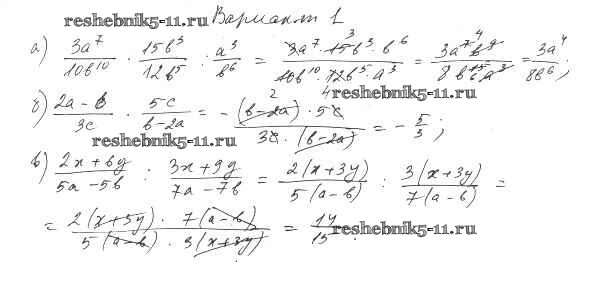 reshebnik5-11.ru Вариант 1
а) 3a⁷/10b¹⁰ · 15b³/12b⁵ : a³/b⁶ = 3a⁷·15b³·b⁶/10b¹⁰·12b⁵·a³ = 3a⁷b⁹/8b¹⁵a³ = 3a⁴/8b⁶;
reshebnik5-11.ru
б) 2a-b/3c · 5c/b-2a = - (b-2a)·5c/3c·(b-2a) = - 5/3;
reshebnik5-11.ru
в) 2x+6y/5a-5b : 3x+9y/7a-7b = 2(x+3y)/5(a-b) : 3(x+3y)/7(a-b) =
= 2(x+3y)·7(a-b)/5(a-b)·3(x+3y) = 14/15.
reshebnik5-11.ru